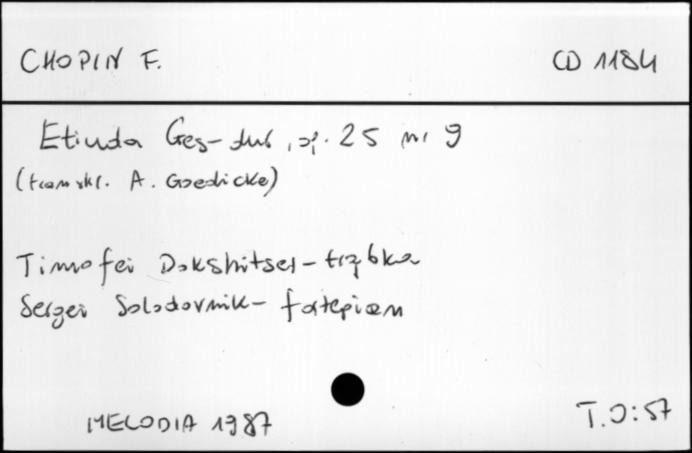 CHOPIN F.
CD 1184
Etiuda Ges-dur, op. 25 nr 9
(transkr. A. Goedicke)
Timofei Dokshitser - trąbka
Sergei Solodovnik - fortepian
MELODIA 1987
T. 0:57